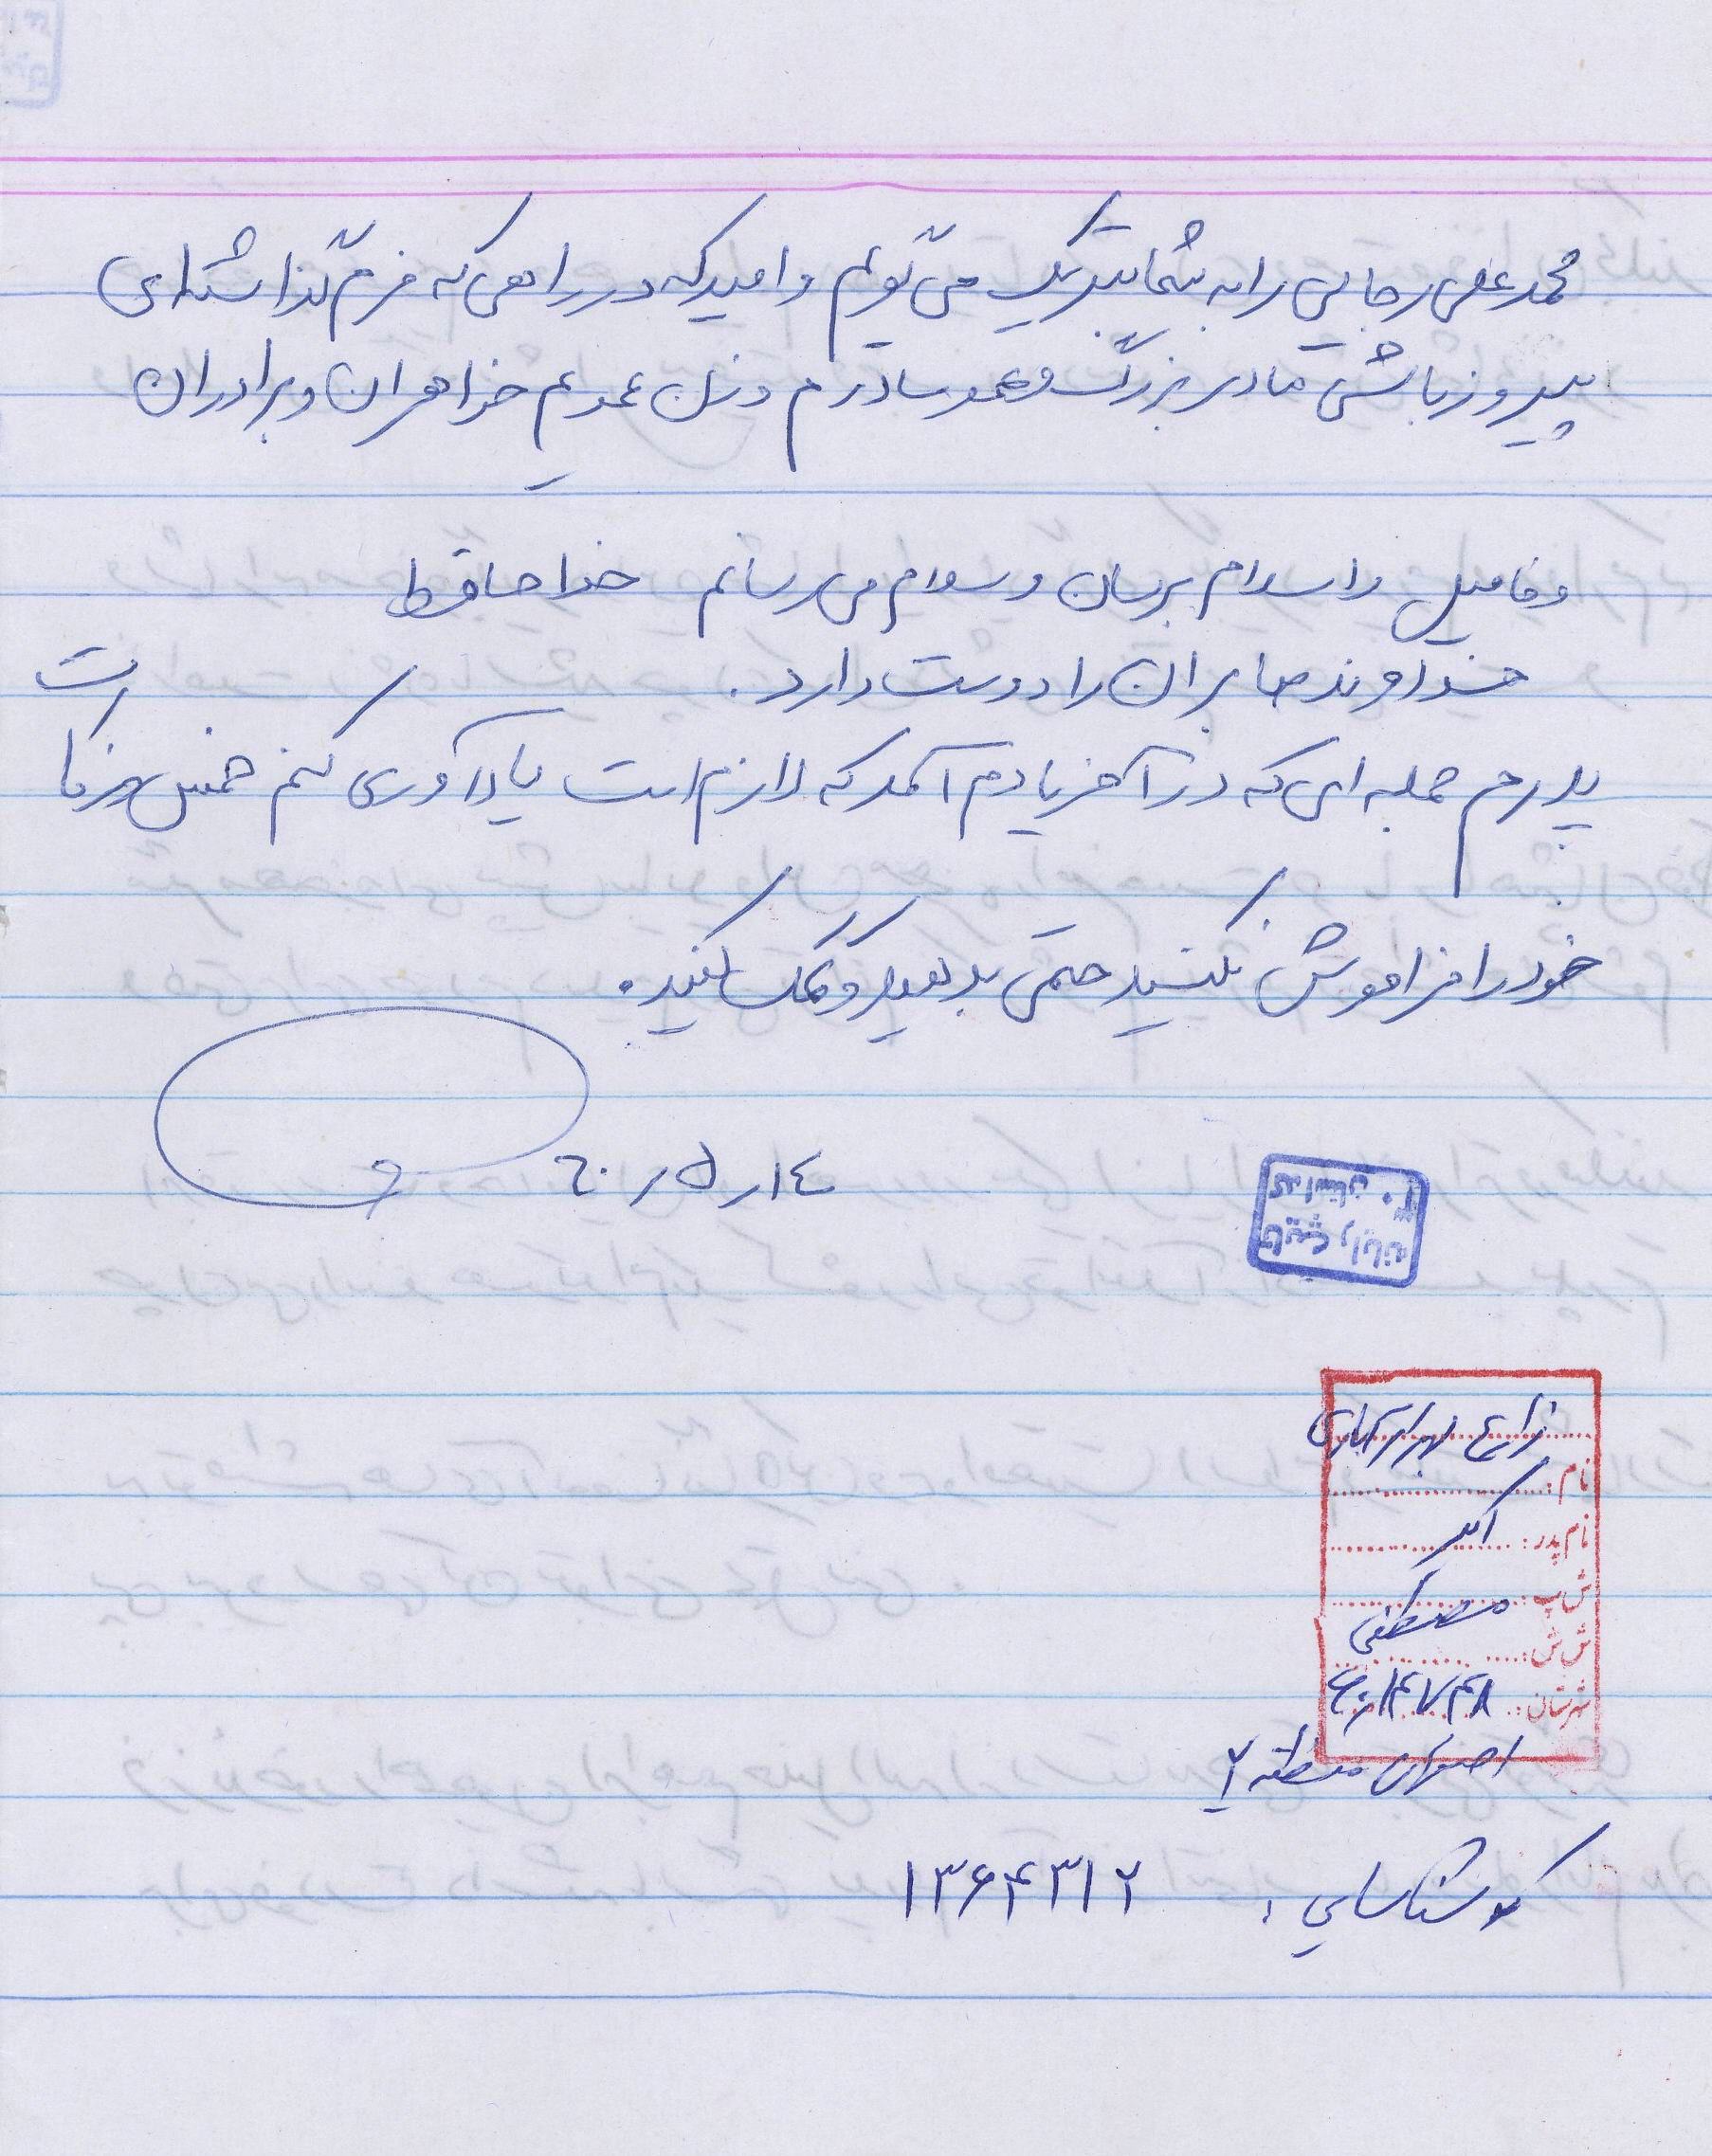 محمد علی رجایی را به شما تبریک می گویم و امید که در راهی که قدم گذاشته ای
پیروز باشی مادر بزرگ و عمو مادرم و زن عمویم خواهران و برادران
و فامیل را سلام برسان و سلام می رسانم خدا حافظ
خداوند صابران را دوست دارد.
پدرم جمله ای که در آخر یادم آمد که لازم است یادآوری کنم خمس و زکات
خود را فراموش نکنید حتمی بدهید و کمک کنید.
١٤ر٥ر٦٠
تایپ رایانه
کد استان ۳۰
زارع بهرام آبادی
نام:
اکبر
نام پدر:
ش پ:
مصطفی
ش ش:
شهرستان:
۶۰/۱۴۷۴۸
اصفهان منطقه ۲
کد شناسایی: ۱۳۶۴۳۱۲